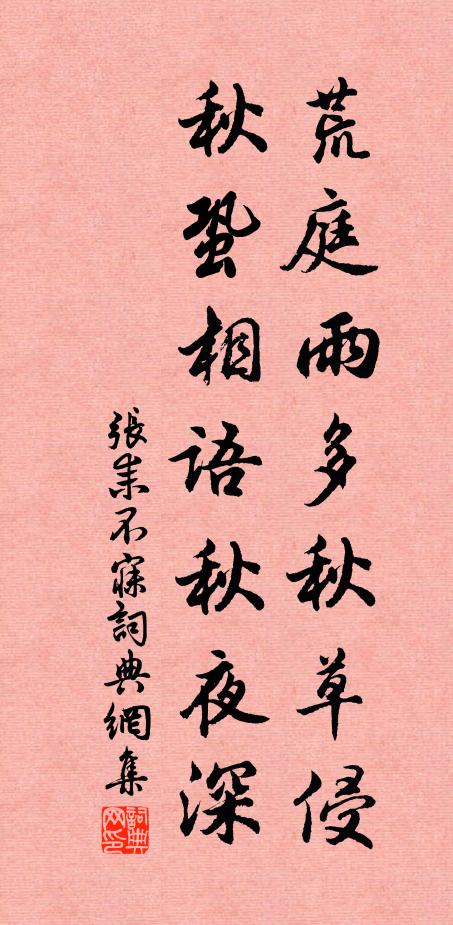 荒庭雨多秋草侵
秋蛩相語秋夜深
張耒不寐詞典網集
詞典网印